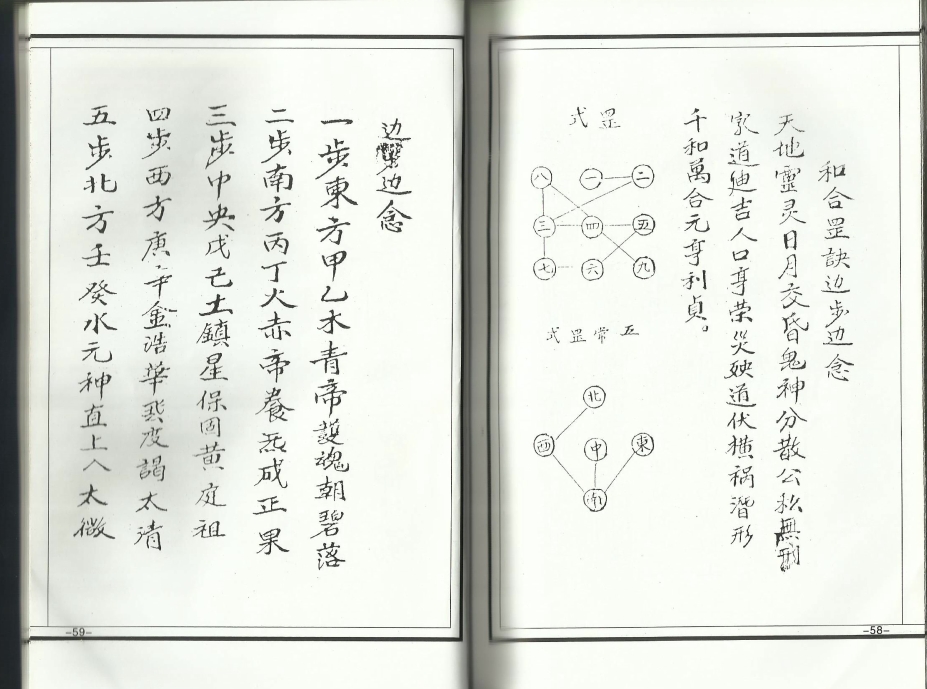 和合罡訣边步边念
天地靈灵日月交昏鬼神分散公私無刑
家道迪吉人口亨荣災殃道伏横祸潛形
千和萬合元亨利貞。
罡式
八 一 二
三 四 五
七 六 九
五常罡式
北
西 中 東
南
-58-
边边念
一步東方甲乙木青帝護魂朝碧落
二步南方丙丁火赤帝養炁成正果
三步中央戊己土鎮星保固黄庭祖
四步西方庚辛金浩華度謁太清
五步北方壬癸水元神直上入太微
-59-